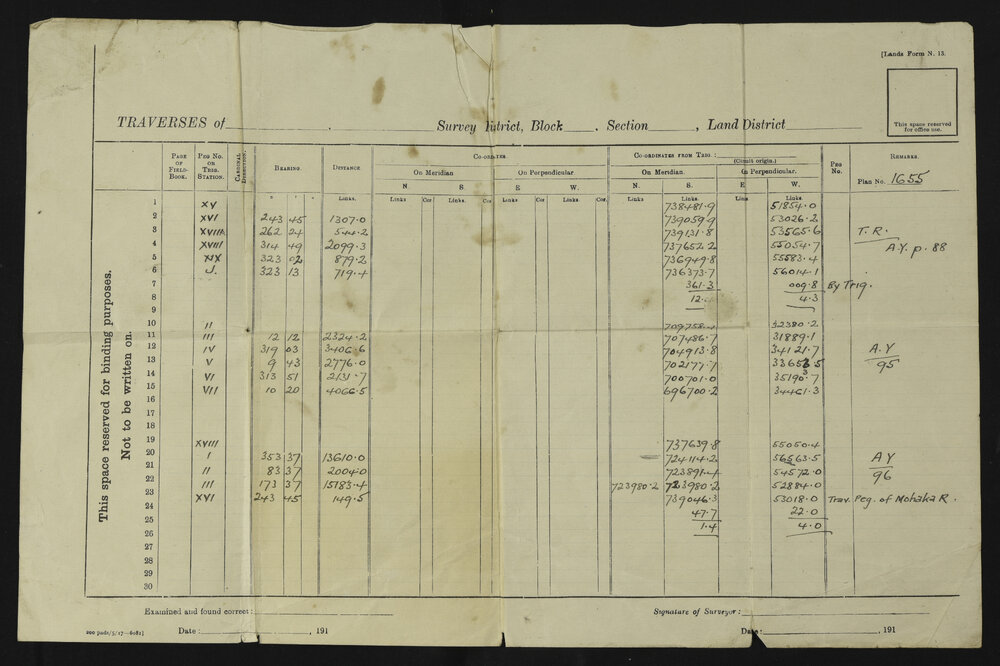 [Lands Form N. 13.
TRAVERSES of Survey District, Block . Section , Land District
This space reserved for office use.
PAGE OF FIELD-BOOK. PEG NO. OR TRIG. STATION. CARDINAL DIRECTION. BEARING. DISTANCE. CO-ORDINATES. CO-ORDINATES FROM TRIG.: (Circuit origin.) PEG No. REMARKS.
On Meridian On Perpendicular On Meridian On Perpendicular. Plan No. 1655
N. S. E W. N. S. E W.
° ' " Links. Links Cor Links. Cor Links Cor Links. Cor. Links Links. Links Links.
1 XV 738481.9 51854.0
2 XVI 243 45 1307.0 739059.9 53026.2
3 XVIIA 262 24 544.2 739131.8 53565.6 T.R.
4 XVIII 314 49 2099.3 737652.2 55054.7 A.Y. p. 88
5 XIX 323 02 879.2 736949.8 55583.4
6 J. 323 13 719.4 736373.7 56014.1
7 361.3 009.8 By Trig.
8 12. 4.3
9
10 II 709758. 32380.2
11 III 12 12 2324.2 707486.7 31889.1
12 IV 319 03 3406.6 704913.8 34121.7 A.Y
13 V 9 43 2776.0 702177.7 33653.5 95
14 VI 313 51 2131.7 700701.0 35190.7
15 VII 10 20 4066.5 696700.2 34461.3
16
17
18
19 XVIII 737639.8 55050.4
20 I 353 37 13610.0 724114.2 56563.5 AY
21 II 83 37 2004.0 723891.4 54572.0 96
22 III 173 37 15783.4 723980.2 723980.2 52884.0
23 XVI 243 45 149.5 739046.3 53018.0 Trav. Peg. of Mohaka R.
24 47.7 22.0
25 1.4 4.0
26
27
28
29
30
This space reserved for binding purposes.
Not to be written on.
Examined and found correct: Signature of Surveyor:
200 pads/5/17—6081] Date: , 191 Date: , 191